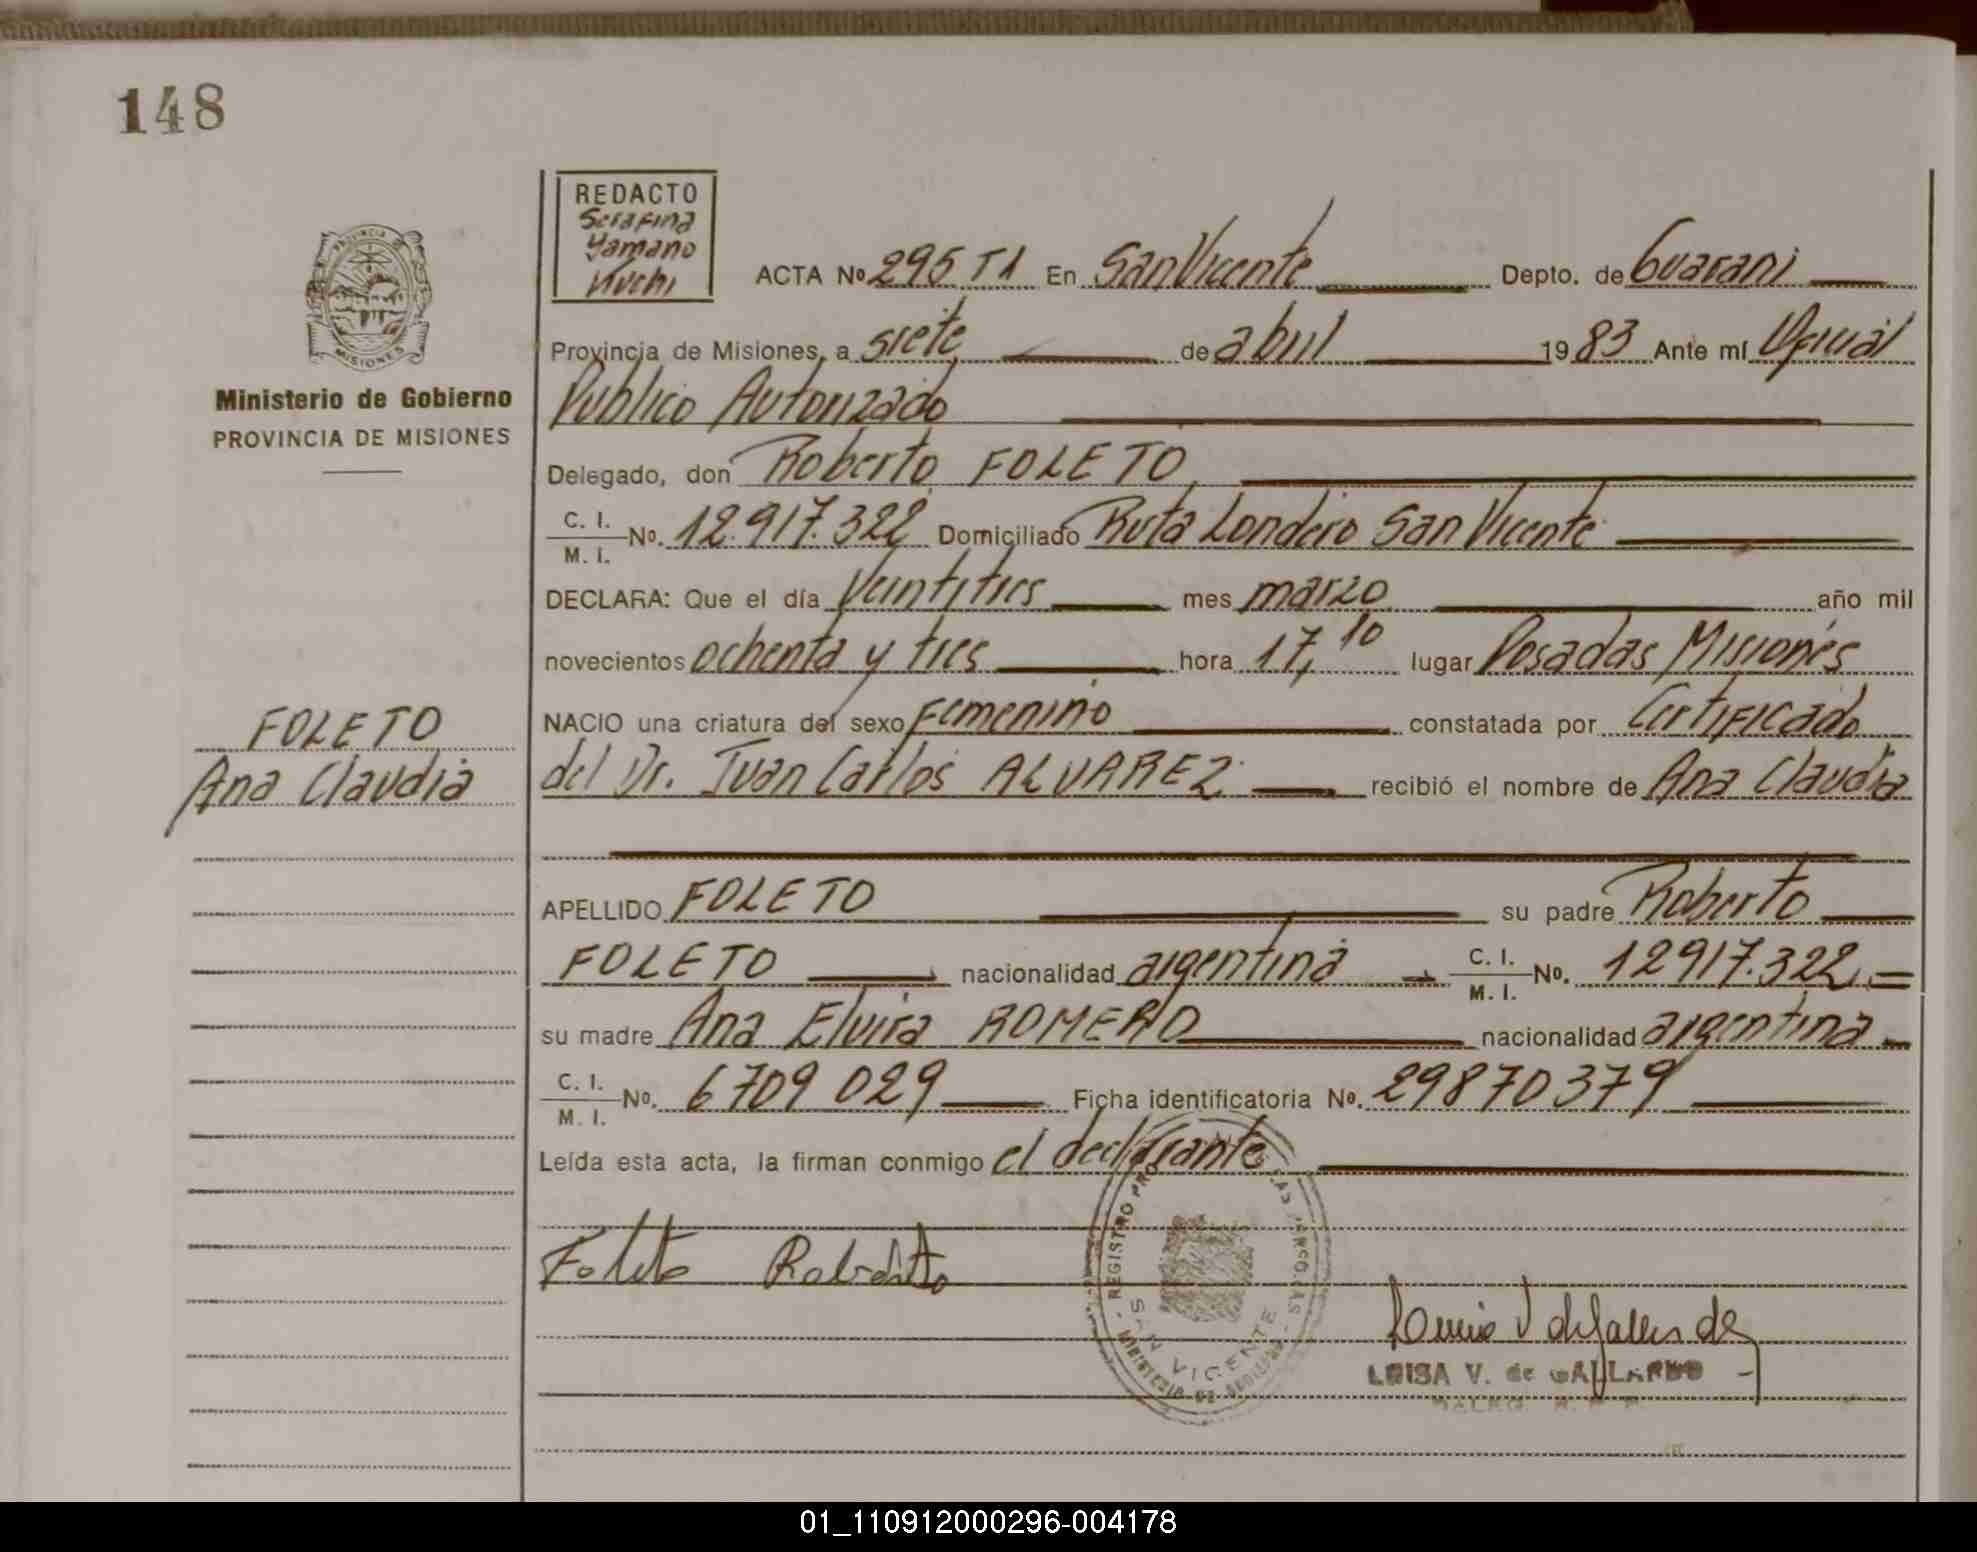 148
REDACTO
Serafina
Yamano
Kuchi
PROVINCIA DE
MISIONES
Ministerio de Gobierno
PROVINCIA DE MISIONES
ACTA Nº 295 T1 En San Vicente Depto. de Guarani
Provincia de Misiones, a siete de abril 1983 Ante mí Oficial
Publico Autorizado
Delegado, don Roberto FOLETO
C. I. / M. I. Nº. 12.917.322 Domiciliado Ruta Londero San Vicente
DECLARA: Que el día Veintitres mes marzo año mil
novecientos ochenta y tres hora 17,10 lugar Posadas Misiones
NACIO una criatura del sexo Femenino constatada por Certificado
FOLETO
Ana Claudia
del Dr. Juan Carlos ALVAREZ recibió el nombre de Ana Claudia
APELLIDO FOLETO su padre Roberto
FOLETO nacionalidad argentina C. I. / M. I. Nº. 12917.322
su madre Ana Elvira ROMERO nacionalidad argentina
C. I. / M. I. Nº. 6709 029 Ficha identificatoria Nº. 29870379
Leída esta acta, la firman conmigo el declarante
Foleto Roberto
REGISTRO
SAN VICENTE
LUISA V. de GALLARDO
01_110912000296-004178